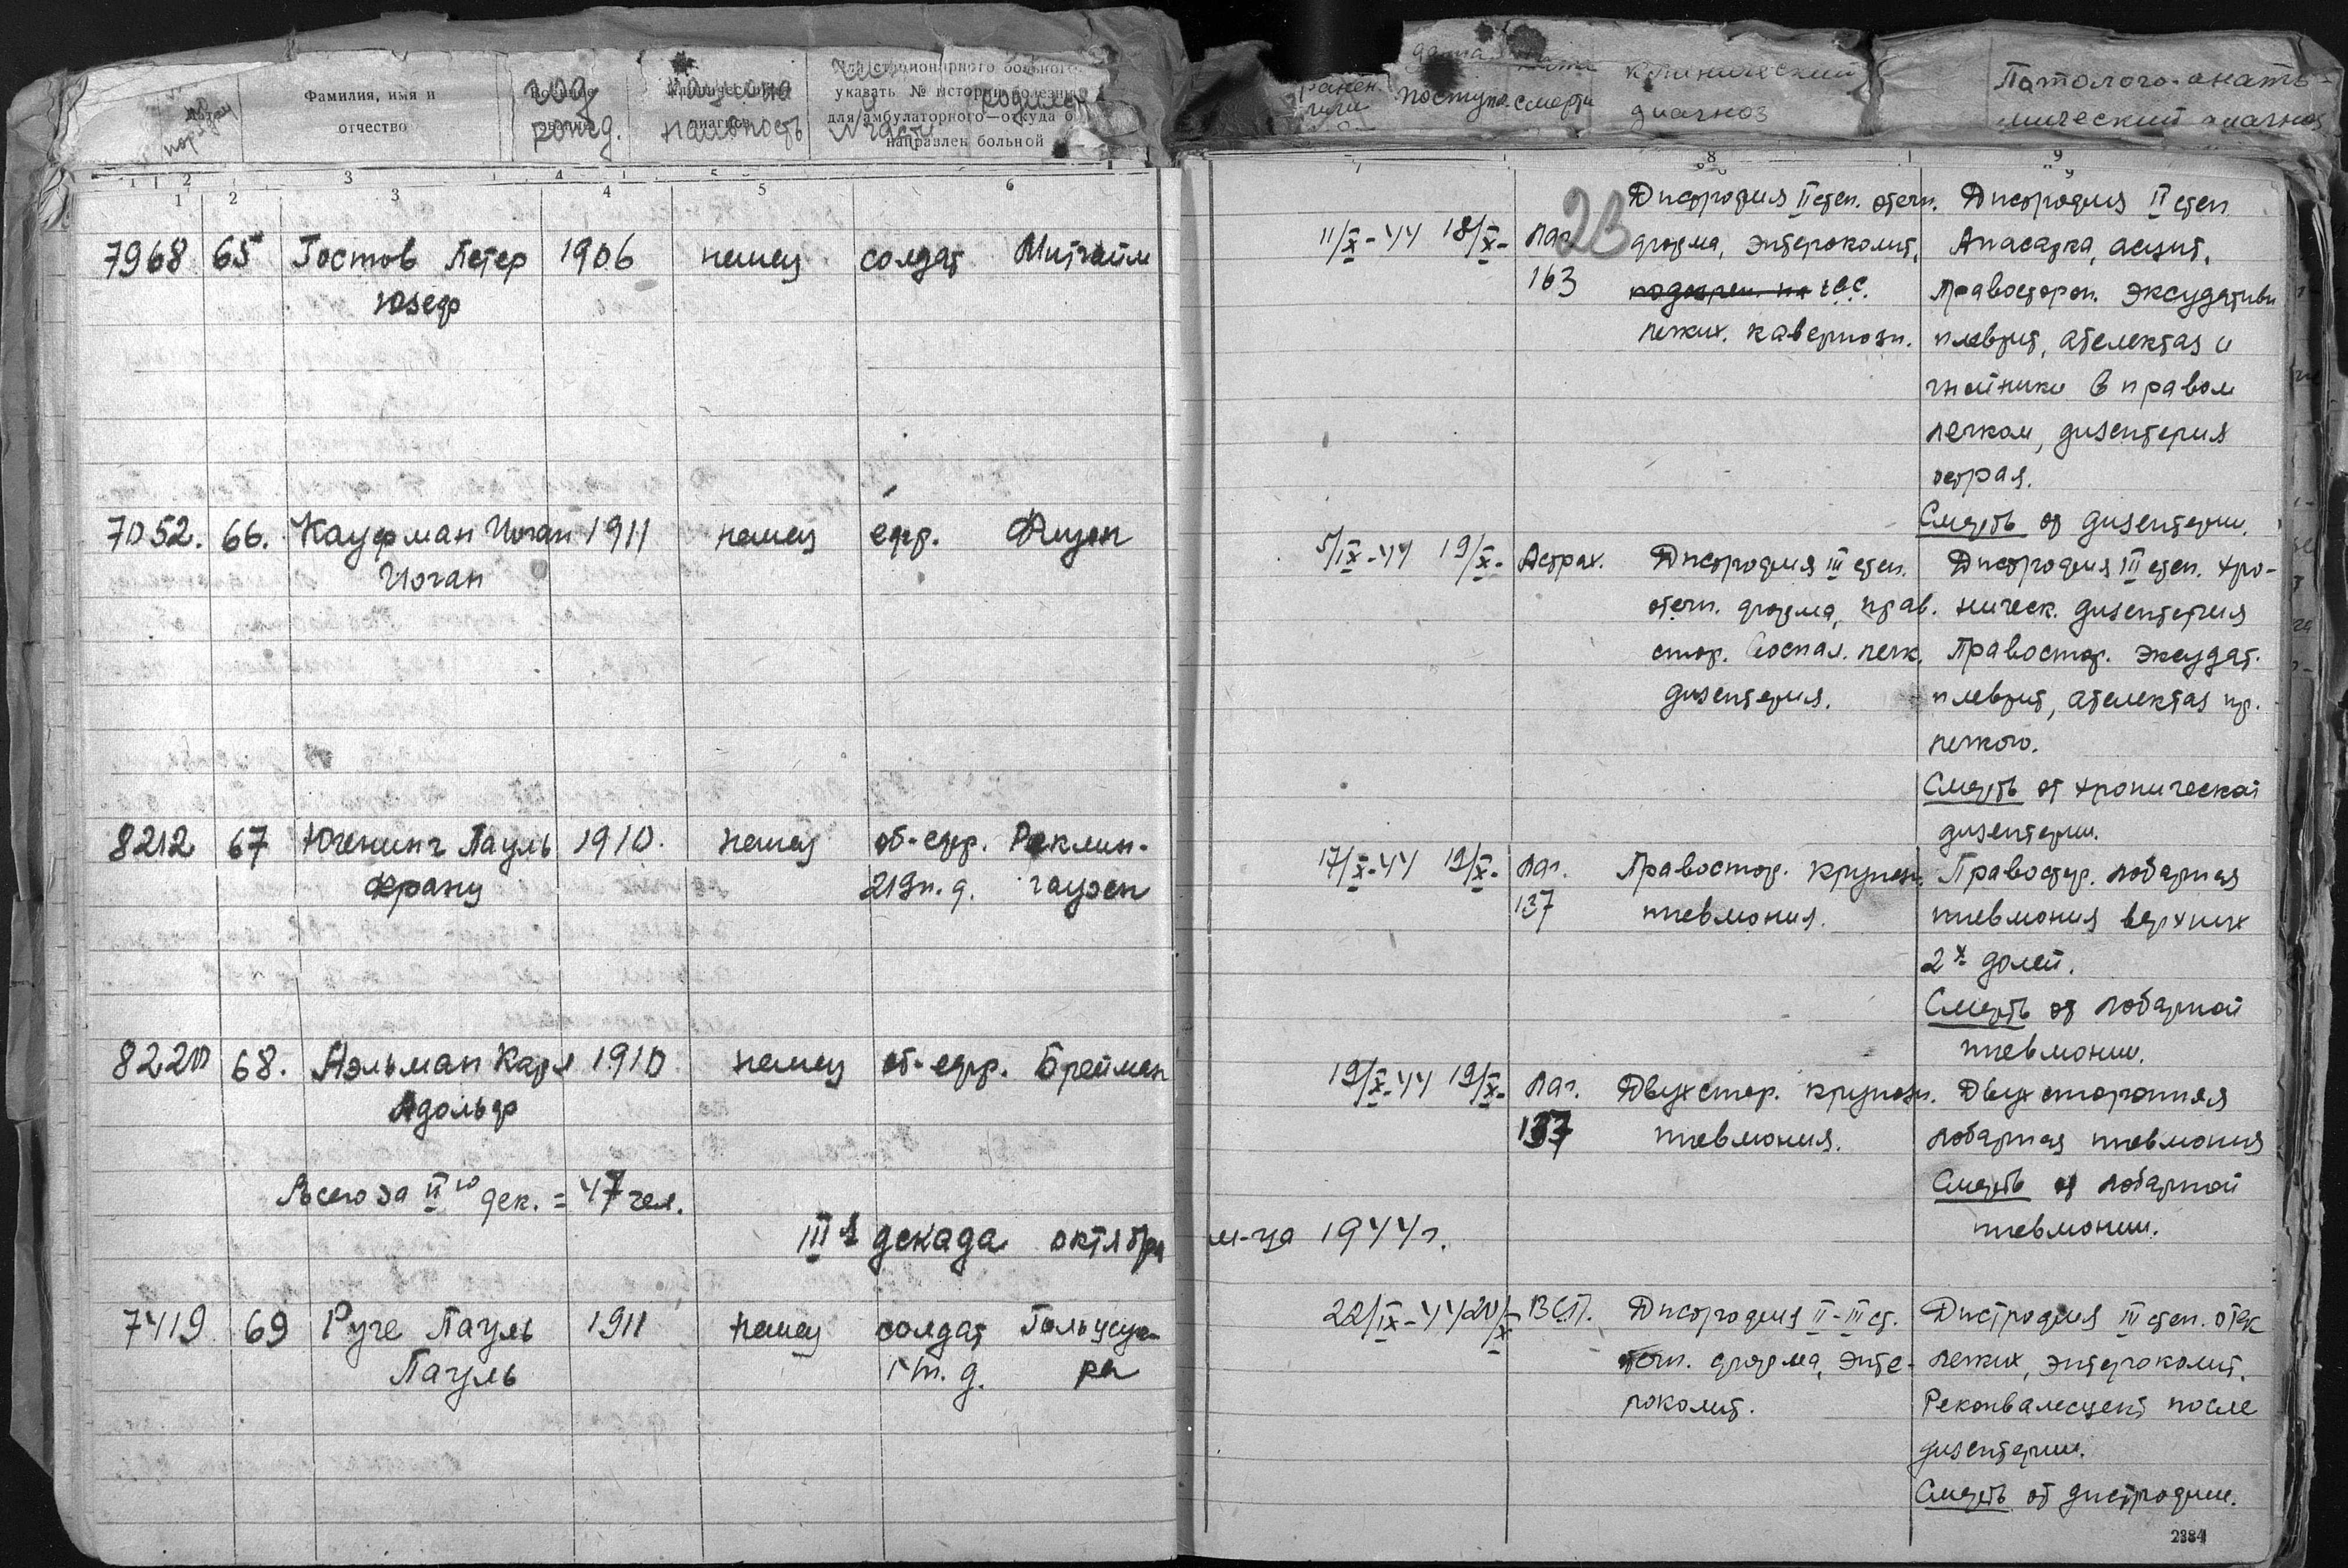 Фамилия, имя и
отчество
год
рожд.
национа
нальность
для стационарного больного
указать № истории болезни
для амбулаторного—откуда
направлен больной
№ части
дата
поступ. смерти
клинический
диагноз
Патолого-анато-
мический диагноз
1 2 3 4 5 6
8 9
7968 65 Гостов Петер 1906 немец солдат Митгайм
Юзеф
11/X-44 18/X- Лаг.
163
23
Дистрофия II степ. отечн.
форма, энтероколит,
легких. кавернозн.
Дистрофия II степ
Анасарка, асцит,
правосторон. эксудативн
плеврит, ателектаз и
гнойники в правом
легком, дизентерия
острая.
Смерть от дизентерии.
7052. 66. Кауфман Иоган 1911 немец ефр. Фицен
Иоган
5/IX-44 19/X- Астрах.
Дистрофия III степ.
отечн. форма, прав.
стор. воспал. легк.
дизентерия.
Дистрофия III степ. хро-
ническ. дизентерия
правостор. эксудат.
плеврит, ателектаз пр.
легкого.
Смерть от хронической
дизентерии.
8212 67 Юченинг Пауль 1910. немец об-ефр. Реклин-
Франц 219п.д. гаузен
17/X-44 19/X- Лаг.
137
Правостор. крупозн.
пневмония.
Правостор. лобарная
пневмония верхних
2х долей.
Смерть от лобарной
пневмонии.
8220 68. Аэльман Карл 1910 немец об-ефр. Бреймен
Адольф
19/X-44 19/X- Лаг.
137
Двухстор. крупозн.
пневмония.
Двухсторонняя
лобарная пневмония
Смерть от лобарной
пневмонии.
Всего за IIю дек. = 47 чел.
IIIя декада октября м-ца 1944г.
7419 69 Руге Пауль 1911 немец солдат Гольцуга-
Пауль 1 т. д. ра
22/IX-44 20/X- ВСП.
Дистрофия II-III ст.
отечн. форма, энте-
роколит.
Дистрофия III степ. отек
легких, энтероколит.
Реконвалесцент после
дизентерии.
Смерть от дистрофии.
2384